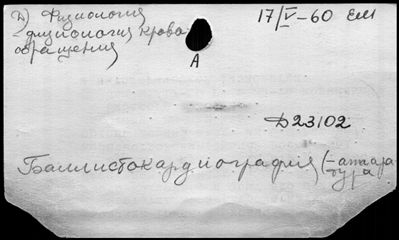 А) Физиология
- физиология крово-
обращения
17/V-60 ЕМ
А
Д23102
Баллистокардиография (-аппара-
тура